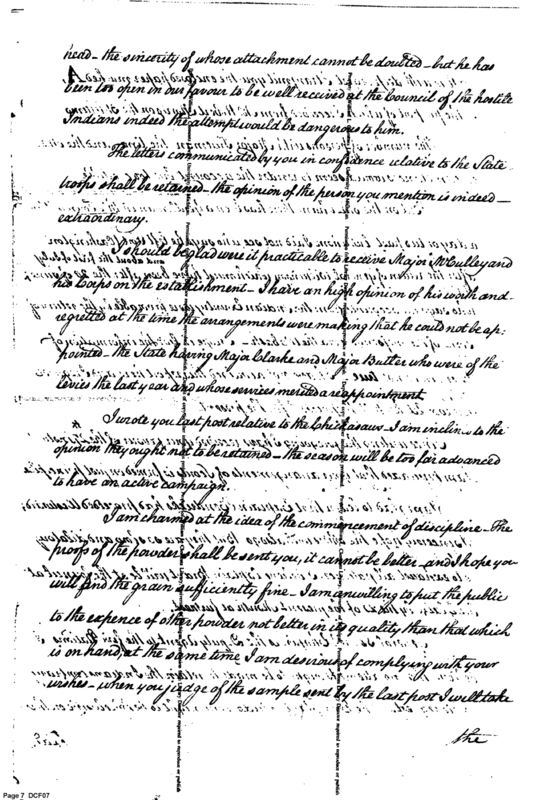 head – the sincerity of whose attachment cannot be doubted – but he has
been too open in our favour to be well received at the Council of the hostile
Indians indeed the attempt would be dangerous to him.
The letters communicated by you in confidence relative to the State
troops shall be retained – the opinion of the person you mention is indeed –
extraordinary.
I should be glad were it practicable to receive Major McCulley and
his Corps on the establishment – I have an high opinion of his worth and
regretted at the time the arrangements were making that he could not be ap:
pointed – the State having Major Clarke and Major Butler who were of the
levies the last year and whose services merited a reappointment
I wrote you last post relative to the Chickasaws – I am inclin to the
opinion they ought not to be retained – the season will be too far advanced
to have an active campaign.
I am charmed at the idea of the commencement of discipline – The
proofs of the powder shall be sent you, it cannot be better – and I hope you
will find the grain sufficiently fine – I am willing to put the public
to the expence of other powder not better in its quality than that which
is on hand, at the same time I am desirous of complying with your
wishes – when you judge of the sample sent by the last post I will take
the
Page 7 DCF07